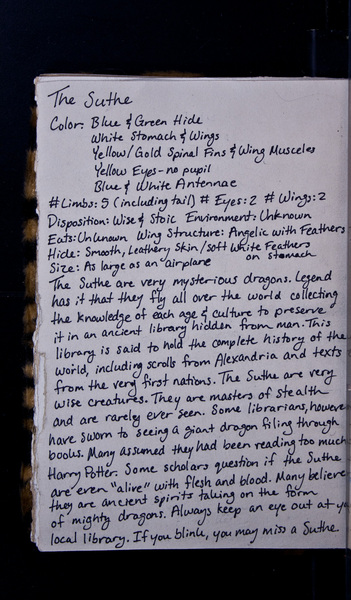 The Suthe
Color: Blue & Green Hide
White Stomach & Wings
Yellow/Gold Spinal Fins & Wing Muscles
Yellow Eyes-no pupil
Blue & White Antennae
# Limbs: 5 (including tail) # Eyes: 2 # Wings: 2
Disposition: Wise & Stoic Environment: Unknown
Eats: Unknown Wing Structure: Angelic with Feathers
Hide: Smooth, Leathery Skin/soft White Feathers
on stomach
Size: As large as an airplane
The Suthe are very mysterious dragons. Legend
has it that they fly all over the world collecting
the knowledge of each age & culture to preserve
it in an ancient library hidden from man. This
library is said to hold the complete history of the
world, including scrolls from Alexandria and texts
from the very first nations. The Suthe are very
wise creatures. They are masters of stealth
and are rarely ever seen. Some librarians, however
have sworn to seeing a giant dragon filing through
books. Many assumed they had been reading too much
Harry Potter. Some scholars question if the Suthe
are even "alive" with flesh and blood. Many believe
they are ancient spirits taking on the form
of mighty dragons. Always keep an eye out at
local library. If you blink, you may miss a Suthe.